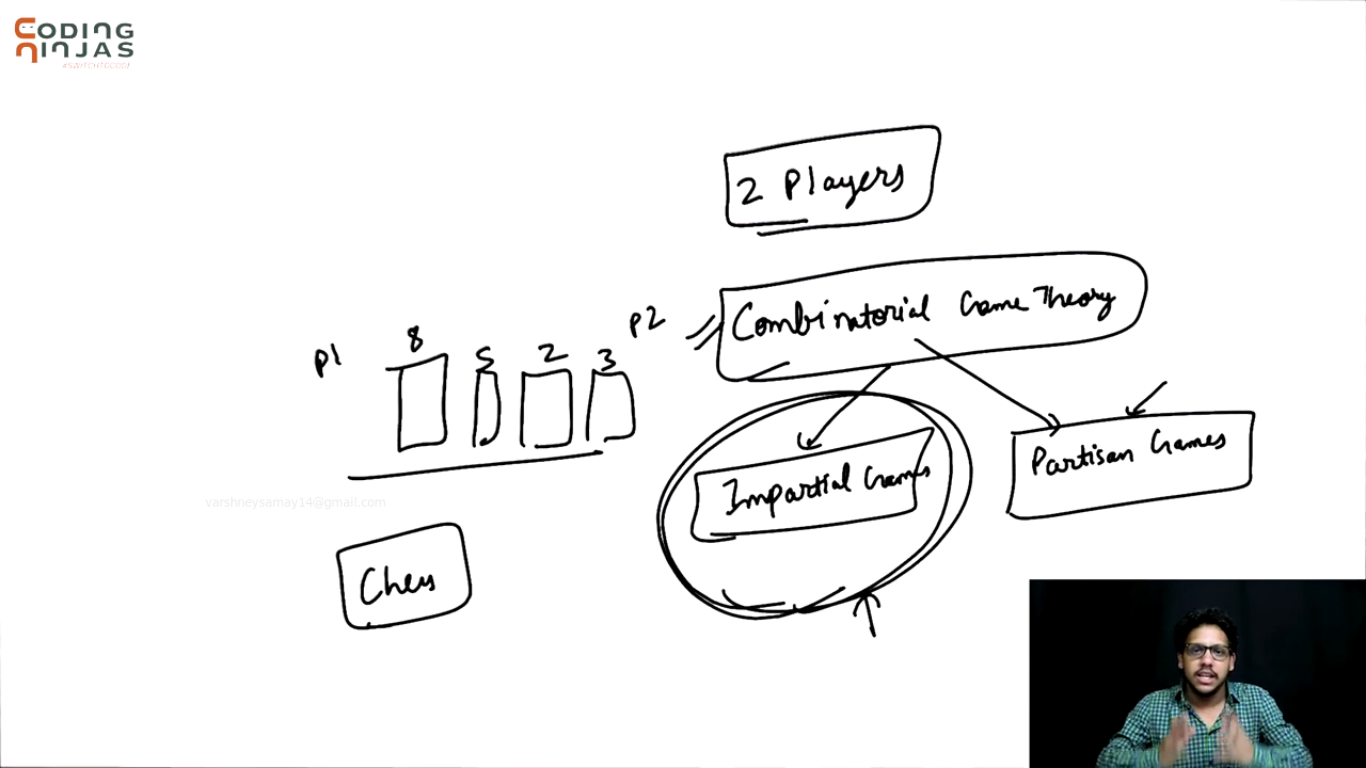 CODING
NINJAS
#SWITCHTOCODE
2 Players
Combinatorial Game Theory
P1
P2
8 5 2 3
Impartial Games
Partisan Games
varshneysamay14@gmail.com
Chess